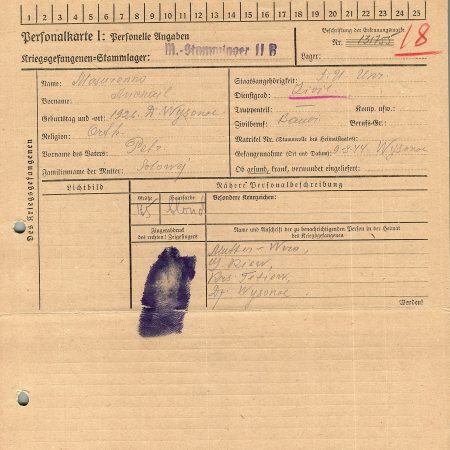 1 2 3 4 5 6 7 8 9 10 11 12 13 14 15 16 17 18 19 20 21 22 23 24 25
Personalkarte I: Personelle Angaben
Kriegsgefangenen-Stammlager: M.-Stammlager II B
Beschriftung der Erkennungsmarke
Nr. 18
Lager:
Des Kriegsgefangenen
Name:
Vorname: Michail
Geburtstag und -ort: 1926 D. Wysonoe
Religion: Orth.
Vorname des Vaters: Petr
Familienname der Mutter: Solowej
Staatsangehörigkeit:
Dienstgrad: Zivil
Truppenteil: — Komp. usw.:
Zivilberuf: Bauer Berufs-Gr.:
Matrikel Nr. (Stammrolle des Heimatstaates):
Gefangennahme (Ort und Datum): 9.8.44 Wysonoe
Ob gesund, krank, verwundet eingeliefert:
Lichtbild
Nähere Personalbeschreibung
Größe
Haarfarbe
blond
Besondere Kennzeichen:
Fingerabdruck
des rechten! Zeigefingers
Name und Anschrift der zu benachrichtigenden Person in der Heimat
des Kriegsgefangenen
Mutter - Wera,
Kiew,
D. Wysonoe
Wenden!